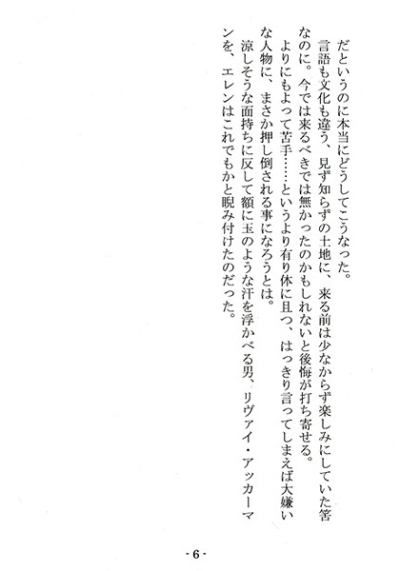 だというのに本当にどうしてこうなった。
言語も文化も違う、見ず知らずの土地に、来る前は少なからず楽しみにしていた筈
なのに。今では来るべきでは無かったのかもしれないと後悔が打ち寄せる。
よりにもよって苦手……というより有り体に且つ、はっきり言ってしまえば大嫌い
な人物に、まさか押し倒される事になろうとは。
涼しそうな面持ちに反して額に玉のような汗を浮かべる男、リヴァイ・アッカーマ
ンを、エレンはこれでもかと睨み付けたのだった。
- 6 -